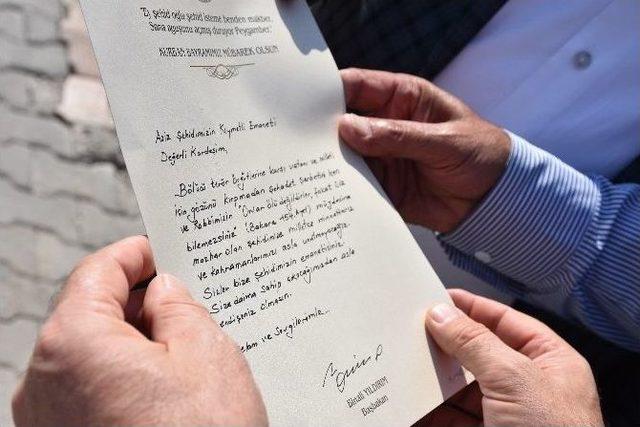 "Ey şehid oğlu şehid isteme benden makber,
Sana aguşunu açmış duruyor Peygamber."
KURBAN BAYRAMINIZ MÜBAREK OLSUN
Aziz Şehidimizin Kıymetli Emaneti
Değerli Kardeşim,
Bölücü terör örgütlerine karşı vatanı ve milleti
için gözünü kırpmadan şehadet şerbetini içen
ve Rabbimizin "Onlar ölü değildirler, fakat siz
bilemezsiniz" (Bakara 154. Ayet) müjdesine
mazhar olan şehidimize milletçe minnettarız
ve kahramanlarımızı asla unutmayacağız.
Sizler bize şehidimizin emanetisiniz.
Size daima sahip çıkacağımızdan asla
endişeniz olmasın.
ve Sevgilerimle..
Binali YILDIRIM
Başbakan